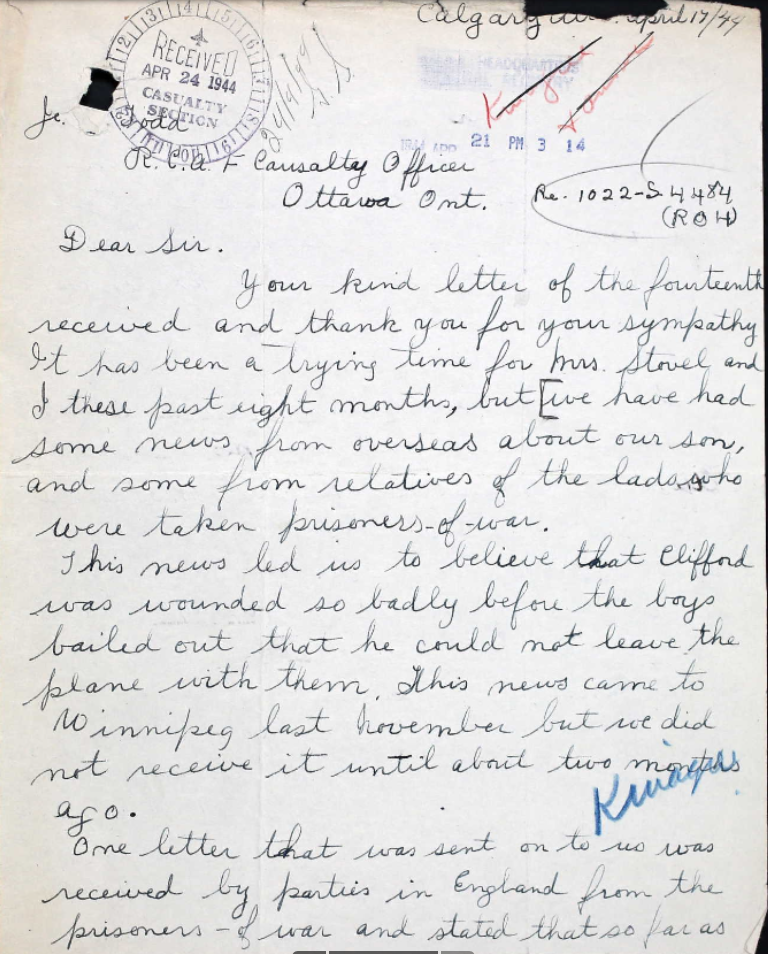 Calgary Alta. April 17/44
RECEIVED
APR 24 1944
CASUALTY
SECTION
24/4/44
HEADQUARTERS
1944 APR 21 PM 3 14
Todd
R.C.A.F Causalty Officer
Ottawa Ont.
Re. 1022-S-4484
(RO4)
Dear Sir.
Your kind letter of the fourteenth
received and thank you for your sympathy
It has been a trying time for Mrs. Stovel and
I these past eight months, but [we have had
some news from overseas about our son,
and some from relatives of the lads who
were taken prisoners-of-war.
This news led us to believe that Clifford
was wounded so badly before the boys
bailed out that he could not leave the
plane with them. This news came to
Winnipeg last November but we did
not receive it until about two months
ago.
One letter that was sent on to us was
received by parties in England from the
prisoners-of war and stated that so far as